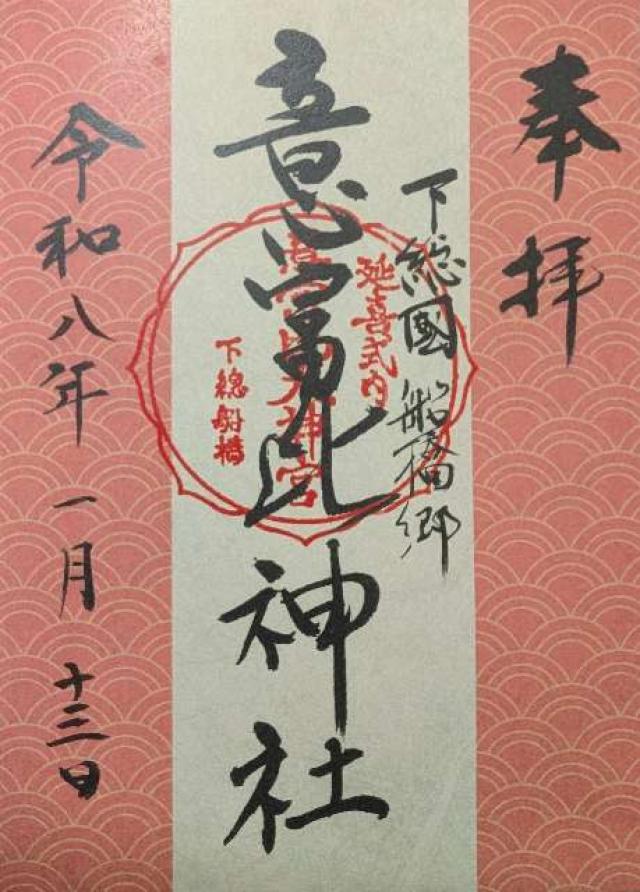 奉拝
下総國船橋郷
意富比神社
延喜式内
意富比大神宮
下総船橋
令和八年一月十三日